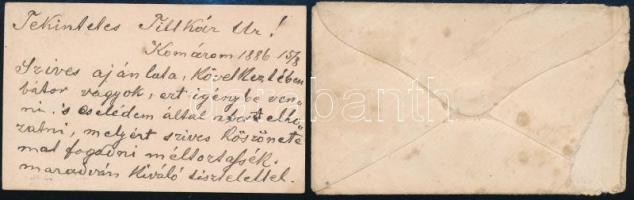 Tekintetes Tittkár Ur!
Komárom 1886 15/8
Szives ajánlata, következtében
bátor vagyok, ezt igénybe ven-
ni, is cselédem által most elho-
zatni, melyért szives köszönete-
mat fogadni méltoztassék.
maradván kiváló tisztelettel.
darabanth